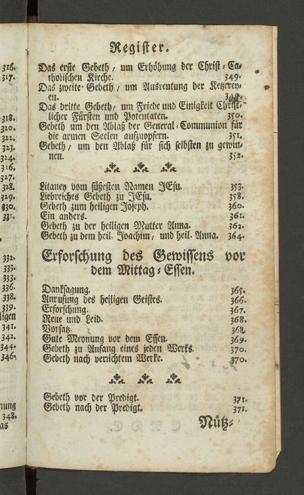 Register.
Das erste Gebeth, um Erhöhung der Christ-Ca-
tholischen Kirche. 349.
Das zweite Gebeth, um Ausreutung der Ketzerey-
en.
Das dritte Gebeth, um Friede und Einigkeit Christ-
licher Fürsten und Potentaten. 350.
Gebeth um den Ablaß der General-Communion für
die armen Seelen aufzuopfern. 351.
Gebeth, um den Ablaß für sich selbsten zu gewin-
nen. 352.
Litaney vom süßesten Namen JEsu. 353.
Liebreiches Gebeth zu JEsu. 358.
Gebeth zum heiligen Joseph. 360.
Ein anders. 361.
Gebeth zu der heiligen Mutter Anna. 362.
Gebeth zu dem heil. Joachim, und heil. Anna. 364.
Erforschung des Gewissens vor
dem Mittag-Essen.
Danksagung. 365.
Anrufung des heiligen Geistes. 366.
Erforschung. 367.
Reue und Leid. 368.
Vorsatz. 368.
Gute Meynung vor dem Essen. 369.
Gebeth zu Anfang eines jeden Werks. 370.
Gebeth nach verrichtem Werke. 370.
Gebeth vor der Predigt. 371.
Gebeth nach der Predigt. 371.
Nütz-
316.
317.
318.
320.
322.
323.
328.
329.
330.
332.
333.
336.
339.
341.
342.
344.
346.
348.